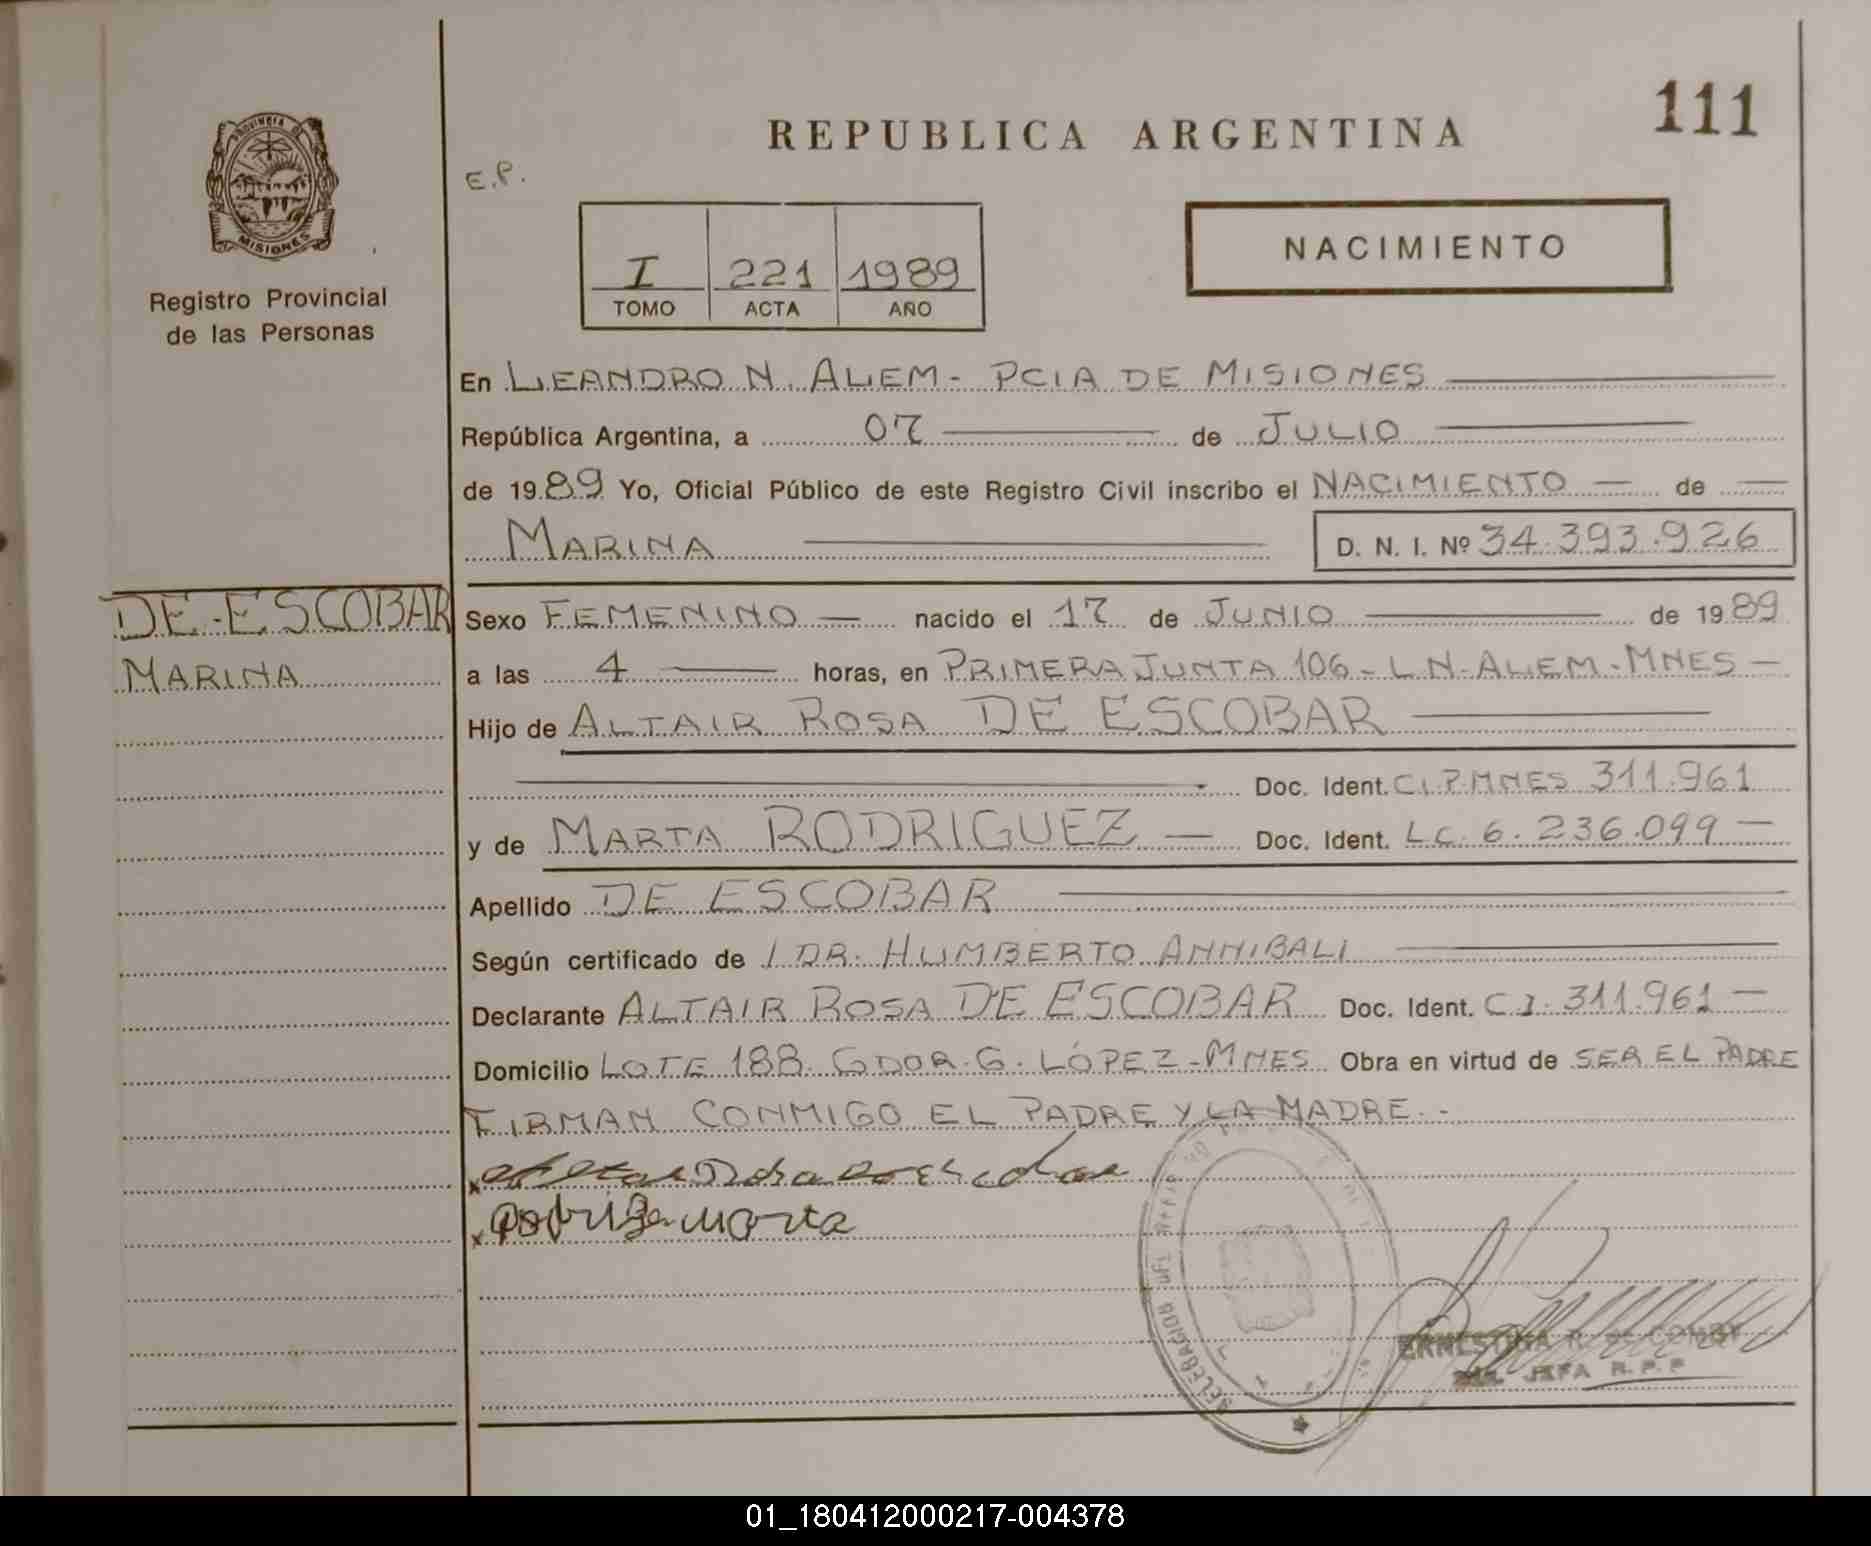 111
REPUBLICA ARGENTINA
PROVINCIA DE
MISIONES
E.P.
Registro Provincial
de las Personas
I 221 1989
TOMO ACTA AÑO
NACIMIENTO
En LEANDRO N. ALEM - PCIA DE MISIONES
República Argentina, a 07 de JULIO
de 1989 Yo, Oficial Público de este Registro Civil inscribo el NACIMIENTO — de —
MARINA D. N. I. Nº 34.393.926
DE ESCOBAR
MARINA
Sexo FEMENINO — nacido el 17 de JUNIO de 1989
a las 4 horas, en PRIMERA JUNTA 106 - L.N. ALEM - MNES —
Hijo de ALTAIR ROSA DE ESCOBAR
Doc. Ident. C.I.P. MNES 311.961
y de MARTA RODRIGUEZ — Doc. Ident. L.C. 6.236.099 —
Apellido DE ESCOBAR
Según certificado de / DR. HUMBERTO ANNIBALI
Declarante ALTAIR ROSA DE ESCOBAR Doc. Ident. C.I. 311.961 —
Domicilio LOTE 188. GDOR. G. LÓPEZ - MNES Obra en virtud de SER EL PADRE
FIRMAN CONMIGO EL PADRE Y LA MADRE. -
JEFA R.P.P
01_180412000217-004378